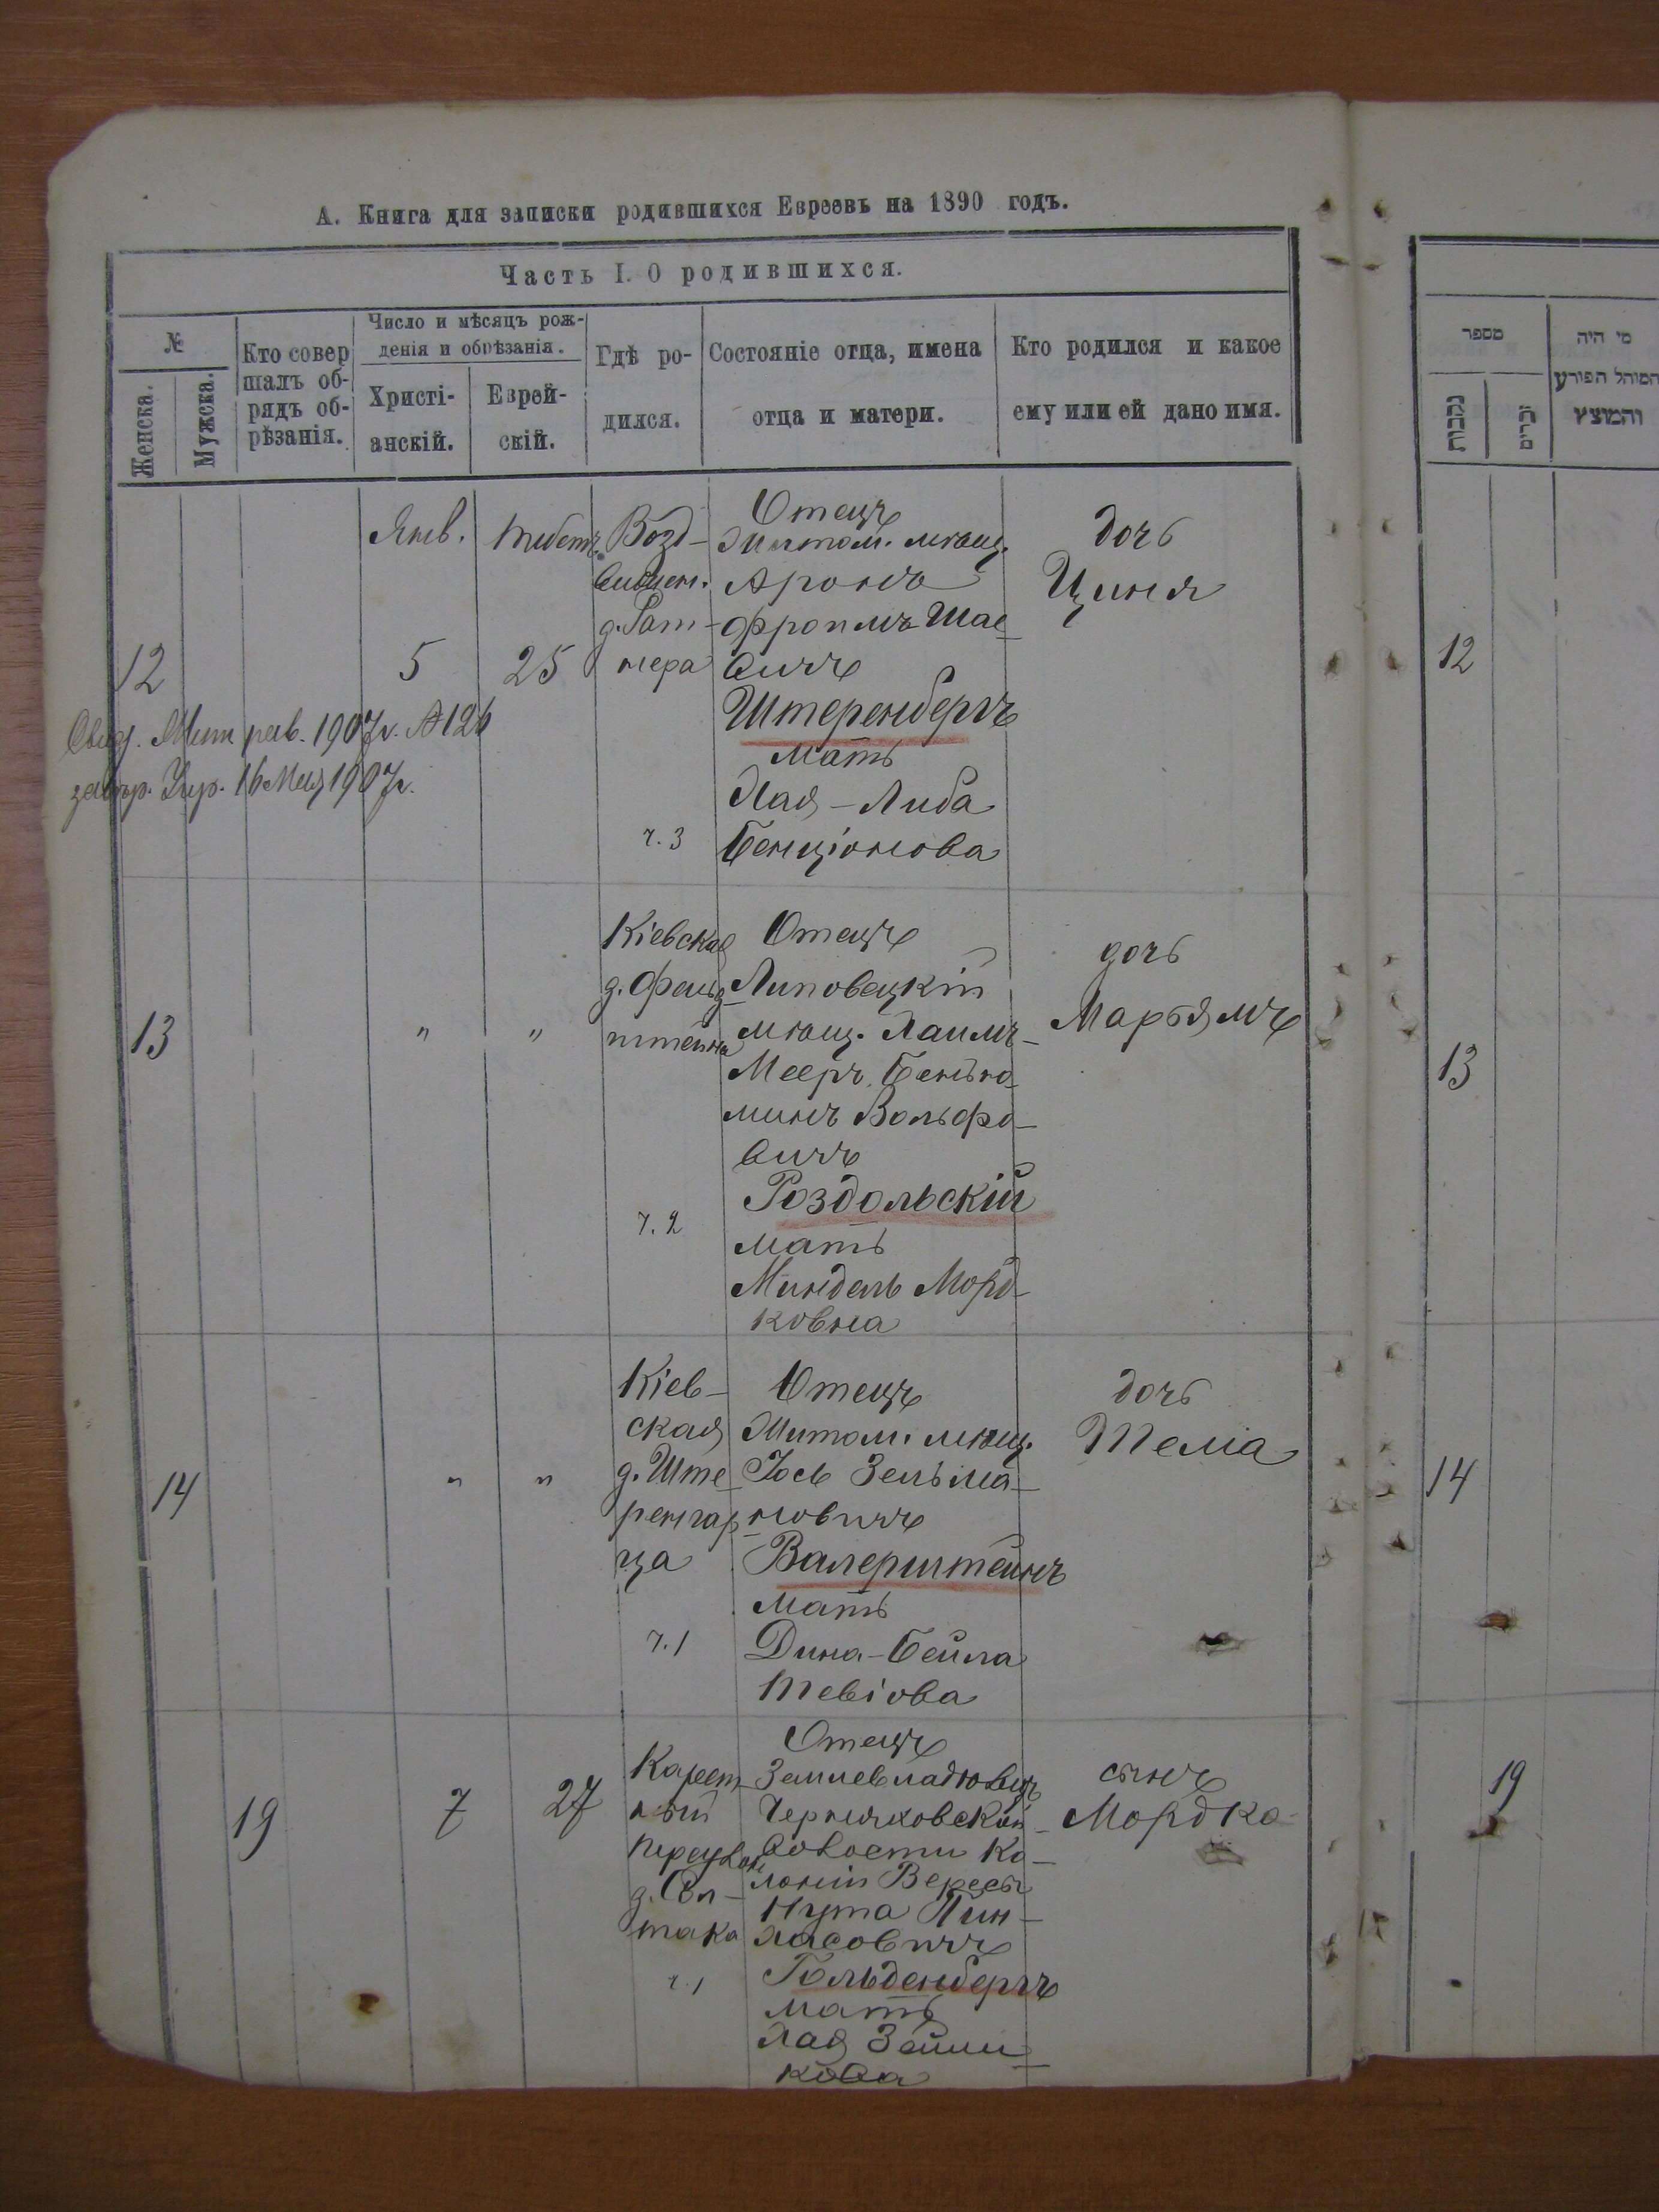 А. Книга для записки родившихся Евреевъ на 1890 годъ.
Часть I. О родившихся.
№
Женска.
Мужска.
Кто совер
шалъ об-
рядъ об-
рѣзанія.
Число и мѣсяцъ рож-
денія и обрѣзанія.
Христі-
анскій.
Еврей-
скій.
Гдѣ ро-
дился.
Состояніе отца, имена
отца и матери.
Кто родился и какое
ему или ей дано имя.
12
Янв.
5
Тебетъ
25
Возд-
вижен.
д. Рат-
нера
ч. 3
Отецъ
Житом. мѣщ.
Аронъ
Фроимъ Шае-
вичъ
Штеренбергъ
Мать
Хая-Либа
Бенціонова
дочь
Циня
Свид. Мит рав. 1907г. № 126
завѣр. Упр. 16 Мая 1907г.
13
"
"
Кіевская
д. Фельд-
штейна
ч. 2
Отецъ
Липовецкій
мѣщ. Хаимъ-
Мееръ Беньа-
минъ Вольфо-
вичъ
Роздольскій
мать
Миндель Морд-
ковна
дочь
Марьямъ
14
"
"
Кіев-
ская
д. Ште-
ренгар-
ца
ч. 1
Отецъ
Житом. мѣщ.
Іось Зельма-
новичъ
Валерштейнъ
Мать
Дина-Бейла
Тевіова
дочь
Тема
19
7
27
Карет-
ный
переулок
д. Спл-
така
ч. 1
Отецъ
Землевладѣлецъ
Черняховской
Волости Ко-
лоніи Вересы
Нута Пин-
хасовичъ
Гольденбергъ
Мать
Хая Зейли-
кова
сынъ
Мордко
מספר
נקבות
זכרים
מי היה
המוהל הפורע
והמוצץ
12
13
14
19